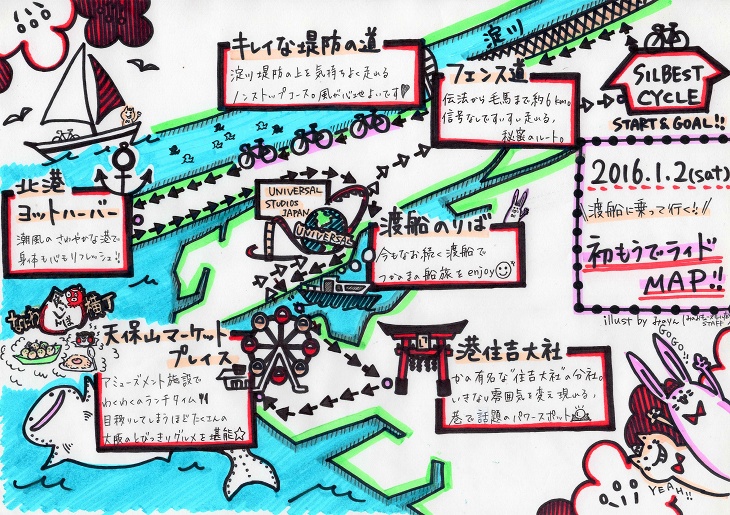 キレイな堤防の道
淀川堤防の上を気持ちよく走れる
ノンストップコース。風が心地よいです
淀川
フェンス道
伝法から毛馬まで約6km。
信号なしですいすい走れる、
秘密のルート。
SILBEST
CYCLE
START & GOAL!!
2016.1.2(sat)
渡船に乗って行く!!
初もうでライド
MAP!!
illust by みずりん
STAFF
GOGO!!
北港
ヨットハーバー
潮風のさわやかな港で
身体も心もリフレッシュ!!
UNIVERSAL
STUDIOS
JAPAN
UNIVERSAL
渡船のりば
今もなお続く渡船で
つかのまの船旅をenjoy
なにわ
横丁
天保山マーケット
プレイス
アミューズメント施設で
わくわくのランチタイム
目移りしてしまうほどたくさんの
大阪のとびっきりグルメを堪能☆
港住吉大社
かの有名な"住吉大社"の分社。
いきなり雰囲気を変え現れる、
巷で話題のパワースポット
YEAH!!